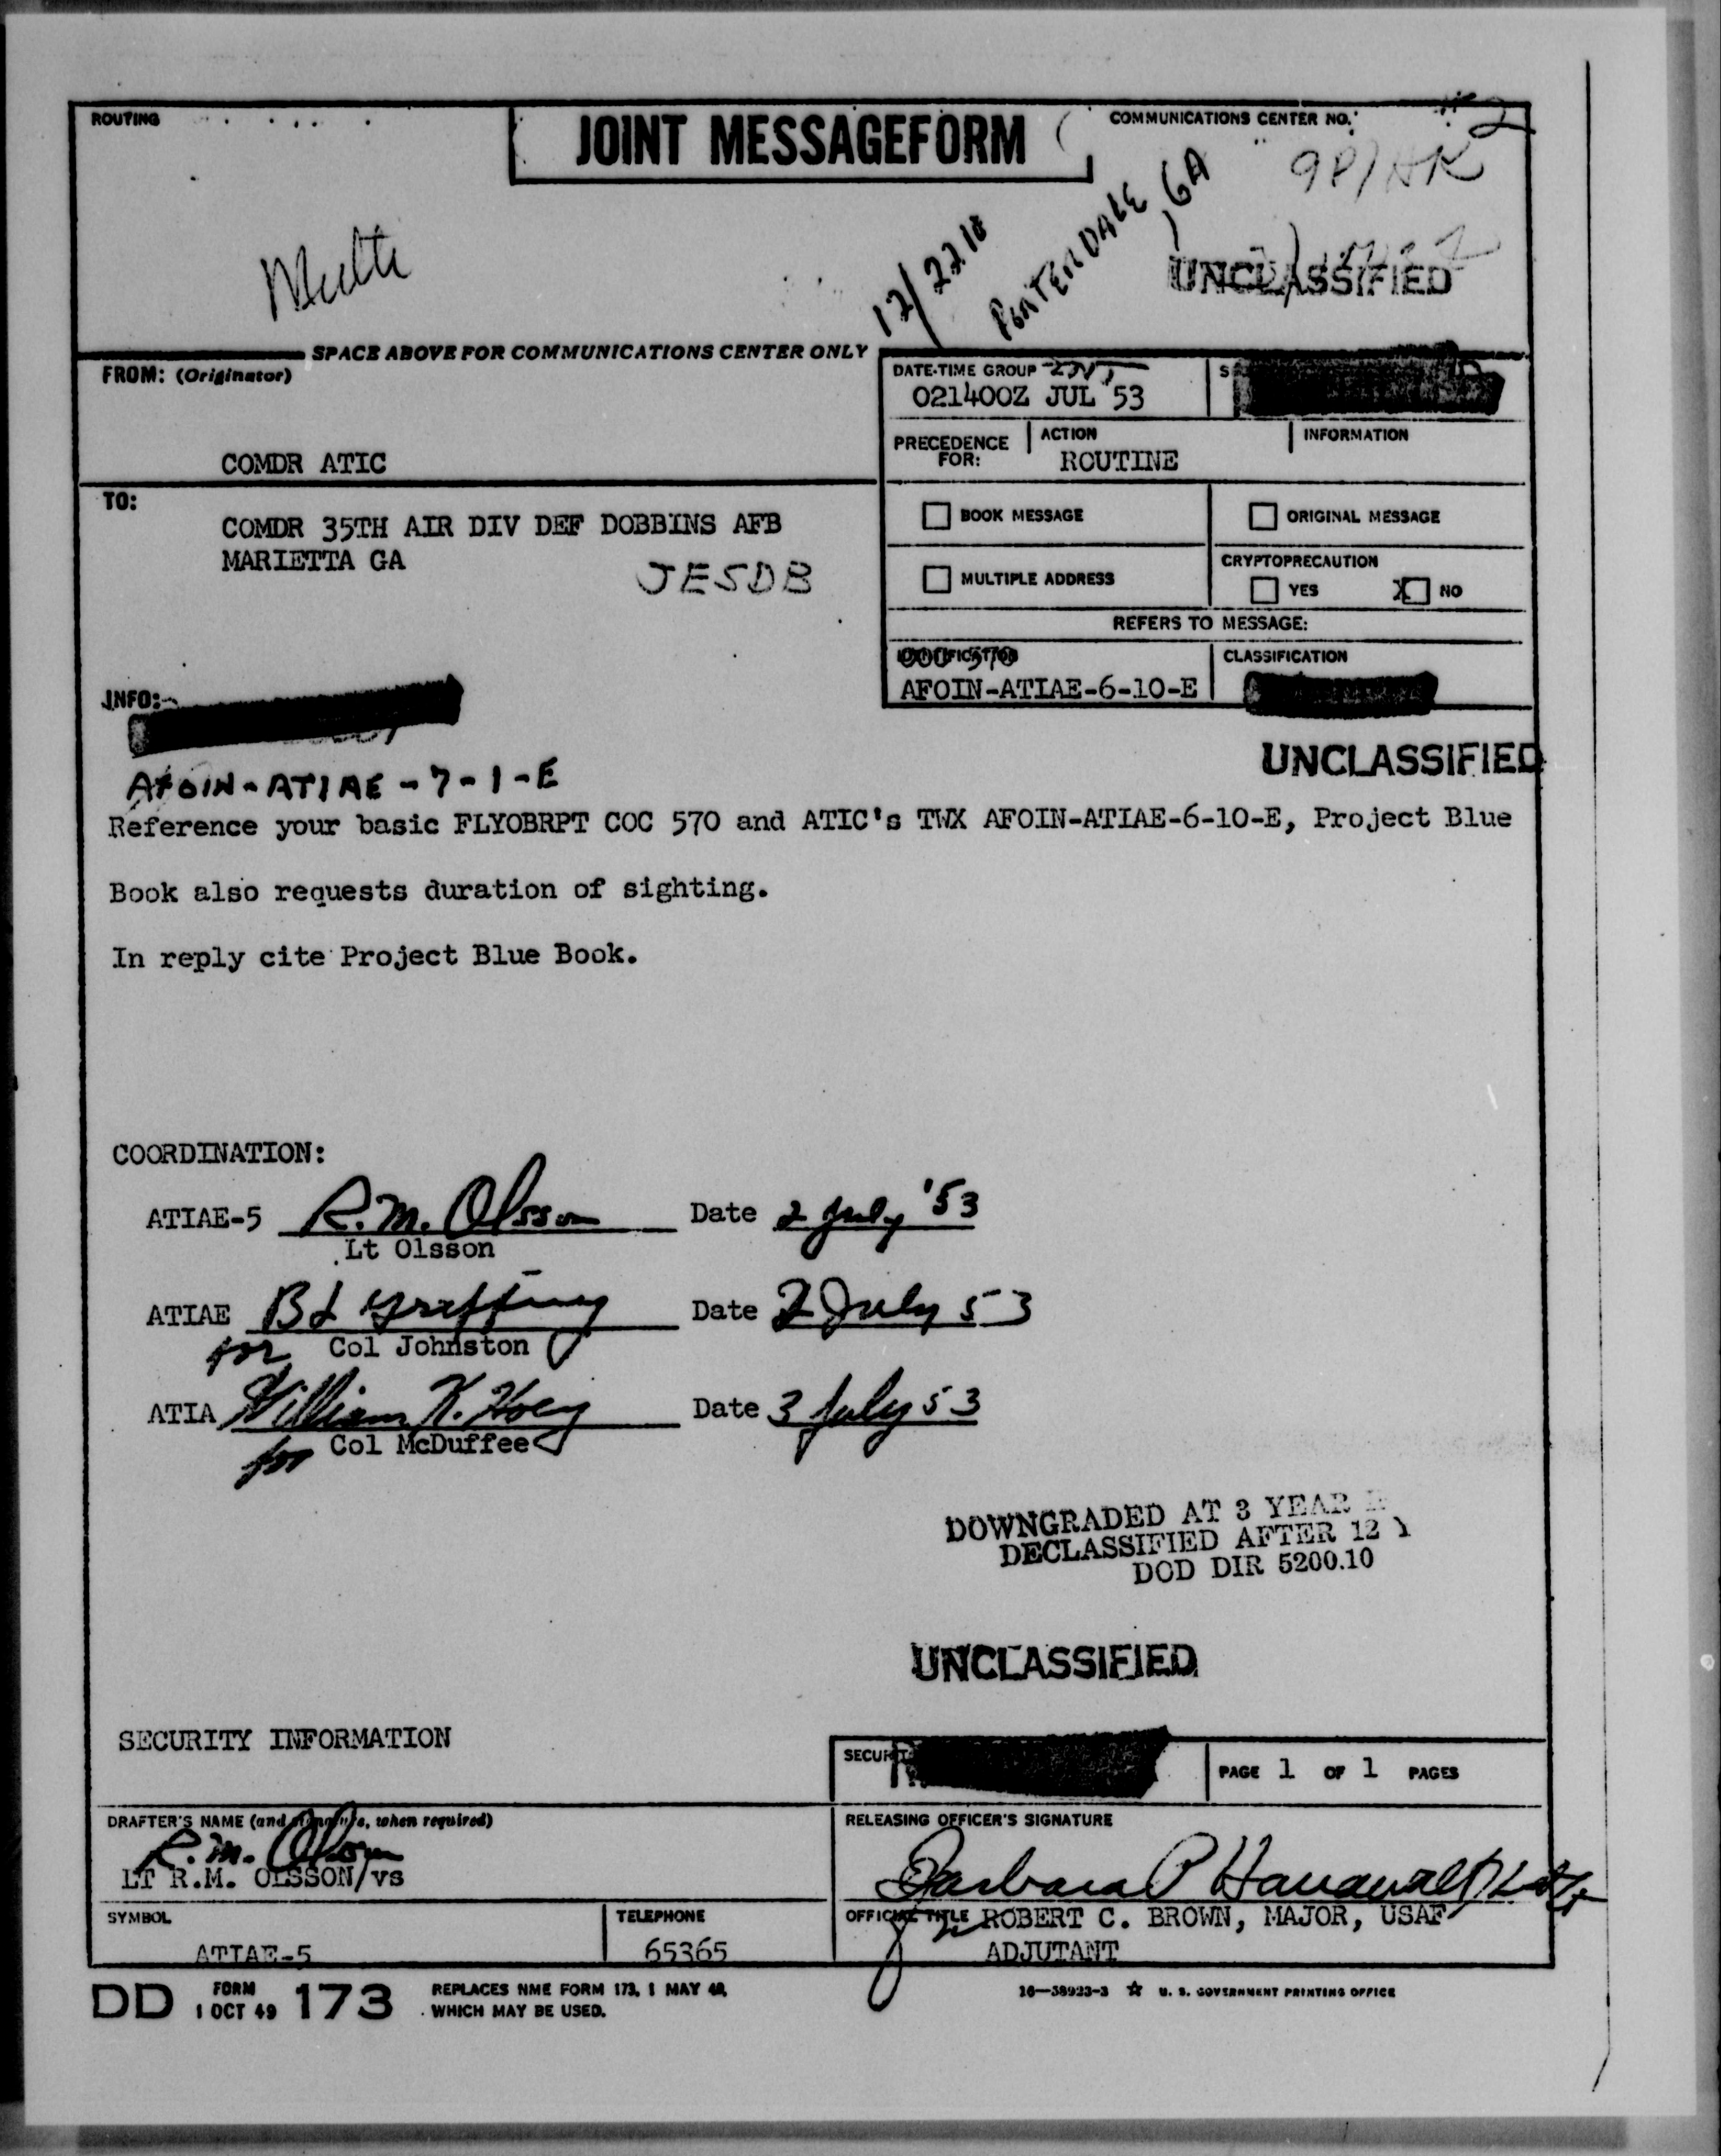 ROUTING
JOINT MESSAGEFORM
COMMUNICATIONS CENTER NO.
2
12/2210
PORTERDALE, GA
UNCLASSIFIED
SPACE ABOVE FOR COMMUNICATIONS CENTER ONLY
FROM: (Originator)
COMDR ATIC
DATE-TIME GROUP
021400Z JUL 53
PRECEDENCE FOR:
ACTION
ROUTINE
INFORMATION
TO:
COMDR 35TH AIR DIV DEF DOBBINS AFB
MARIETTA GA
JESDB
BOOK MESSAGE
ORIGINAL MESSAGE
MULTIPLE ADDRESS
CRYPTOPRECAUTION
YES
X NO
REFERS TO MESSAGE:
AFOIN-ATIAE-6-10-E
CLASSIFICATION
INFO:
UNCLASSIFIED
AFOIN-ATIAE-7-1-E
Reference your basic FLYOBRPT COC 570 and ATIC's TWX AFOIN-ATIAE-6-10-E, Project Blue
Book also requests duration of sighting.
In reply cite Project Blue Book.
COORDINATION:
ATIAE-5 R.M. Olsson Date 2 July '53
Lt Olsson
ATIAE Date 2 July 53
for Col Johnston
ATIA William K. Hoey Date 3 July 53
for Col McDuffee
DOWNGRADED AT 3 YEAR
DECLASSIFIED AFTER 12 Y
DOD DIR 5200.10
UNCLASSIFIED
SECURITY INFORMATION
PAGE 1 OF 1 PAGES
DRAFTER'S NAME (and signature, when required)
R.M. Olsson
LT R.M. OLSSON/vs
RELEASING OFFICER'S SIGNATURE
Barbara P
SYMBOL
ATIAE-5
TELEPHONE
65365
OFFICIAL TITLE ROBERT C. BROWN, MAJOR, USAF
ADJUTANT
DD FORM 1 OCT 49 173
REPLACES NME FORM 173, 1 MAY 48,
WHICH MAY BE USED.
16—38923-3 ☆ U. S. GOVERNMENT PRINTING OFFICE